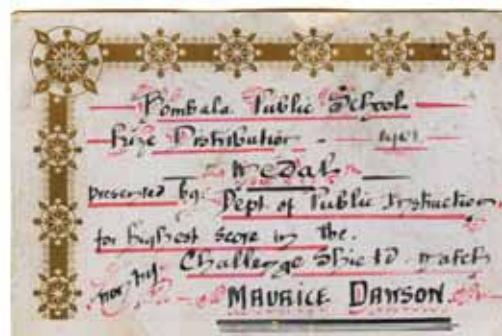 Bombala Public School
Prize Distribution
Medal
presented by: Dept. of Public Instruction
for highest score in the.
Challenge Shield match
MAURICE DAWSON.